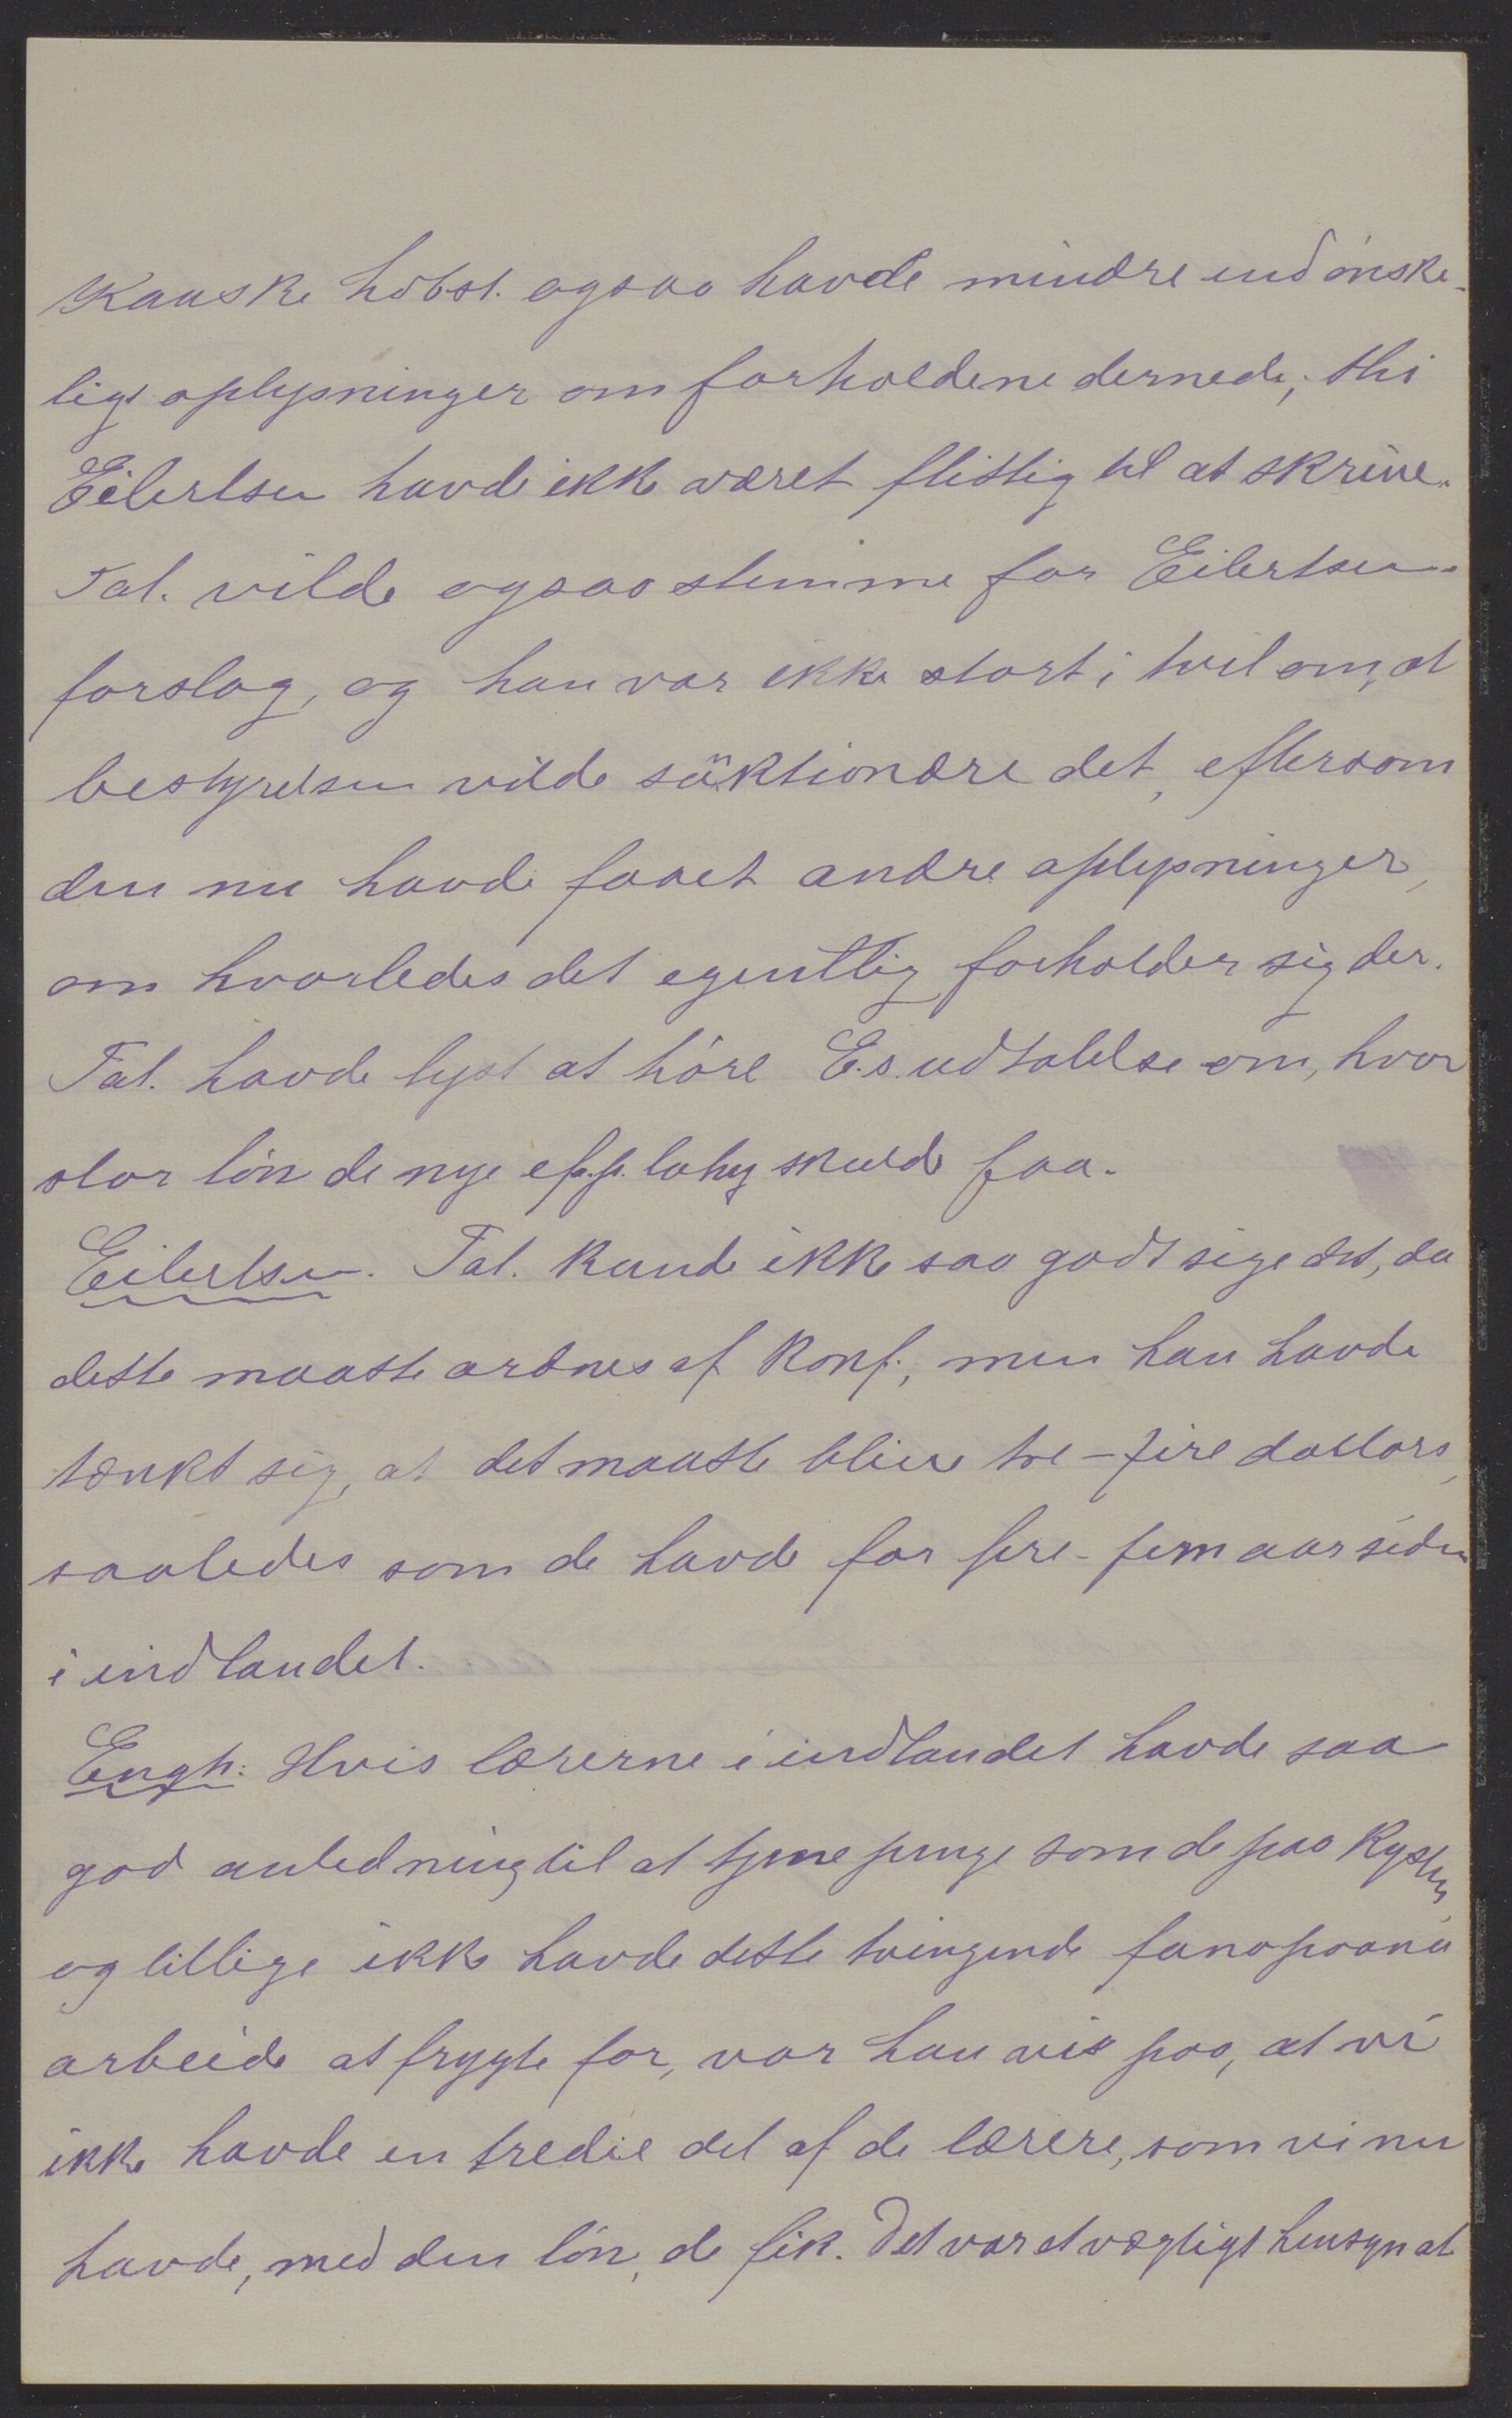 Kanske hdbst. ogsaa havde mindre end ønske-
ligt oplysninger om forholdene dernede; thi
Eilertsen havde ikke været flittig til at skrive.
Tal. vilde ogsaa stemme for Eilertsens
forslag, og han var ikke stort i tvil om, at
bestyrelsen vilde säktionere det, eftersom
den nu havde faaet andre oplysninger,
om hvorledes det egentlig forholder sig der.
Tal. havde lyst at høre E.s. udtalelse om, hvor
stor løn de nye skulde faa.
Eilertsen. Tal. kunde ikke saa godt sige det, da
dette maatte ordnes af Konf., men han havde
tænkt sig, at det maatte blive tre-fire dollars,
saaledes som de havde for fire-fem aar siden
i indlandet.
Engh: Hvis lærerne i indlandet havde saa
god anledning til at tjene penge som de paa kysten,
og tillige ikke havde dette tvingende fanopoana
arbeide at frygte for, var han vis paa, at vi
ikke havde en tredie del af de lærere, som vi nu
havde, med den løn, de fik. Det var et vægtigt hensyn at